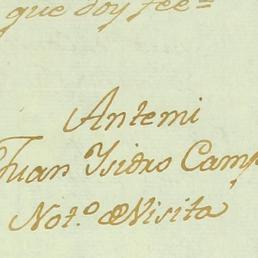 que doy fee=
Antemi
Juan Isidro Camp
Not.º de Visita